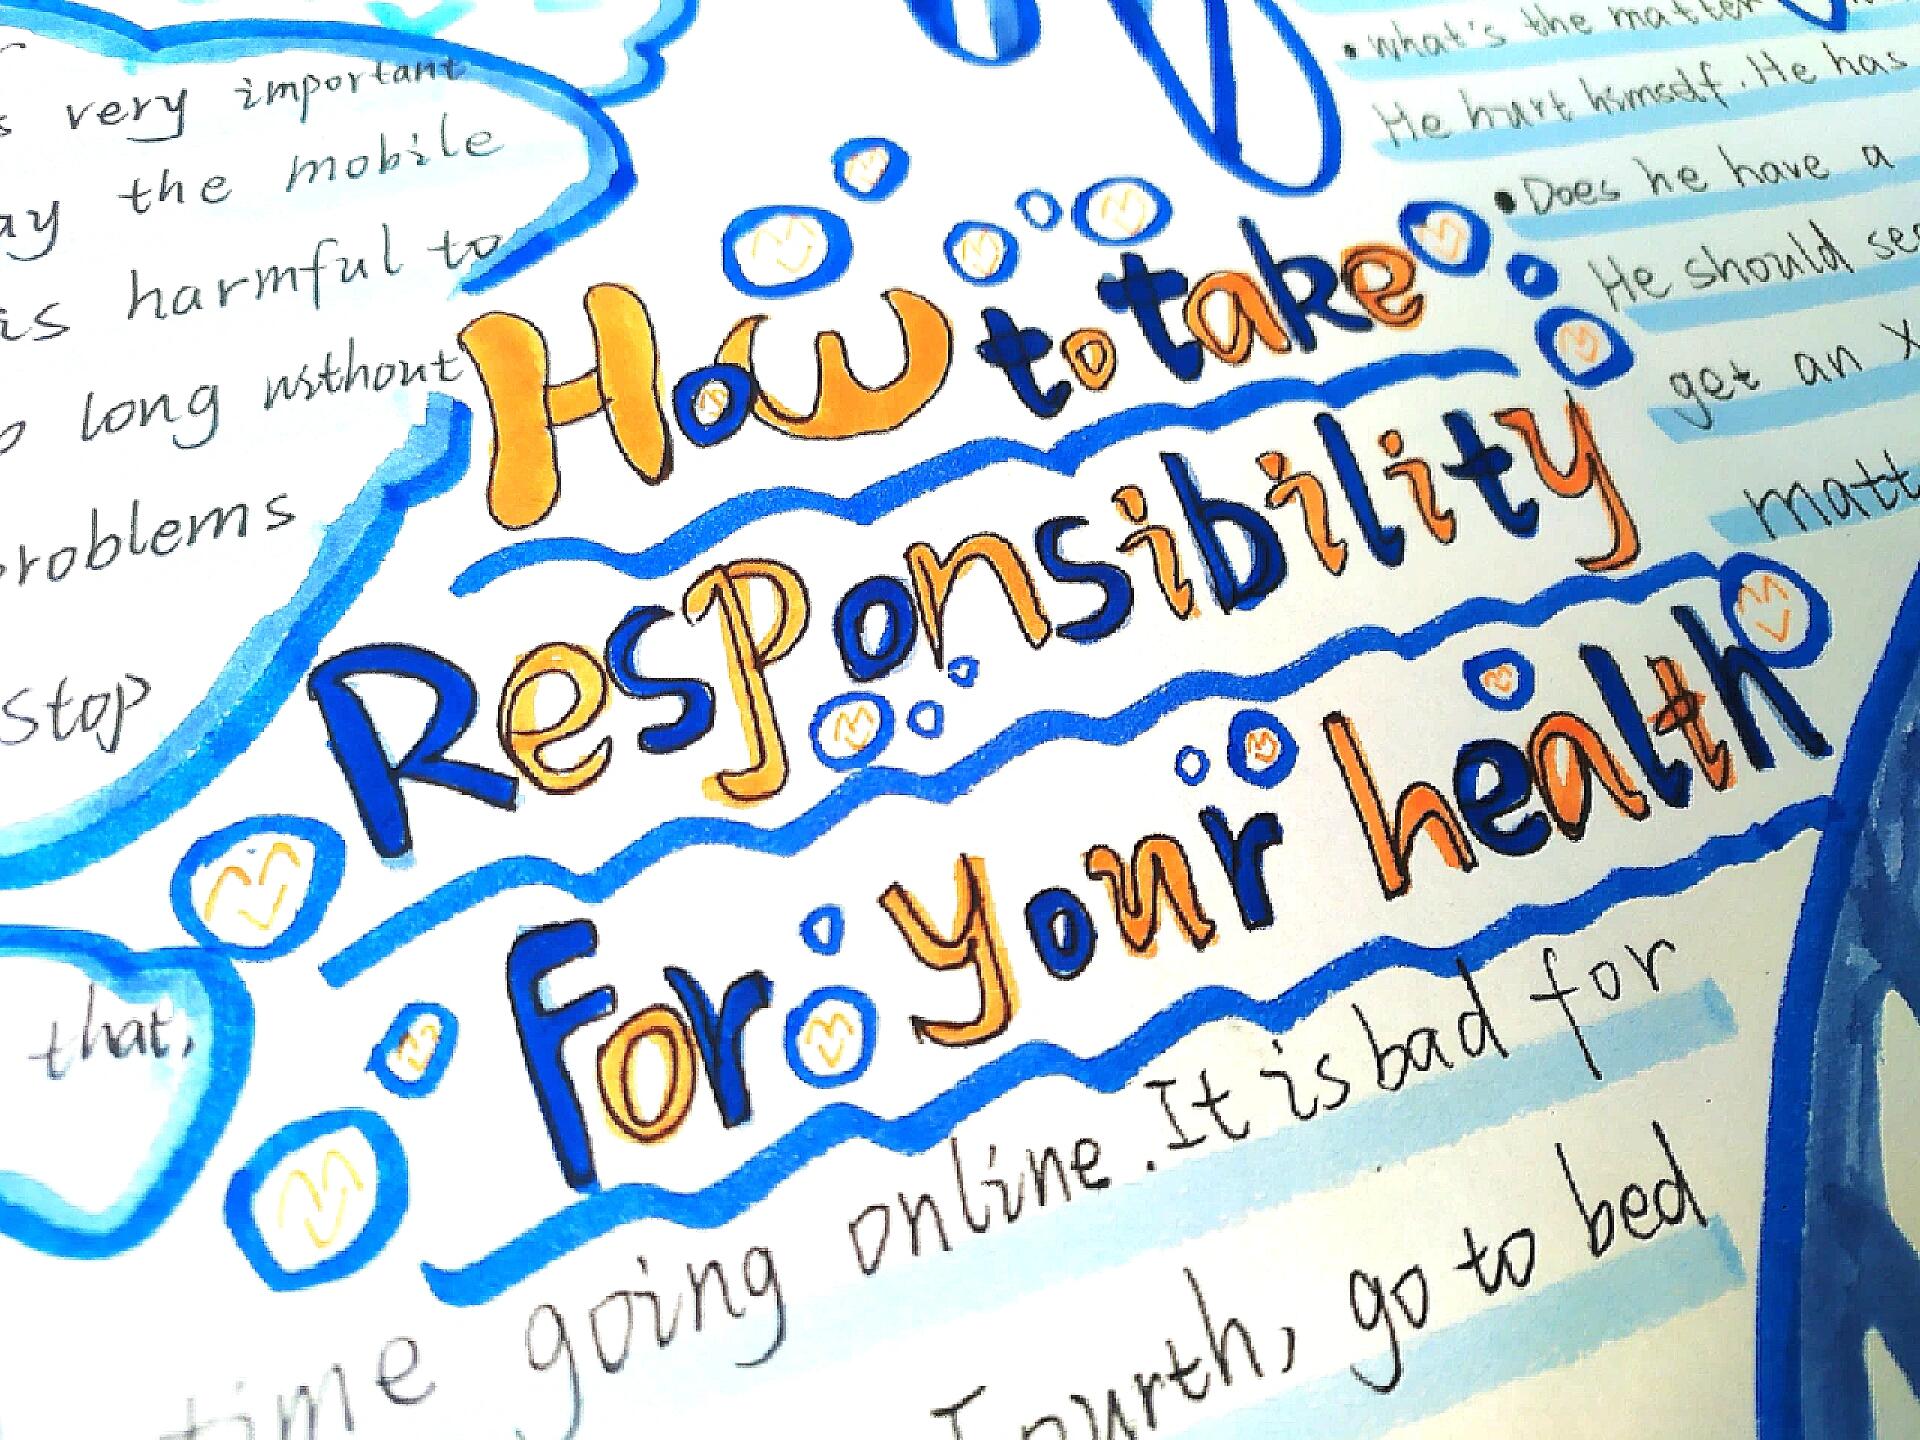 very important
the mobile
is harmful to
long without
problems
Stop
that,
How to take
Responsibility
For your health
• what's the matter
He hurt himself. He has
• Does he have a
He should
get an X
matt
time going online. It is bad for
Fourth, go to bed